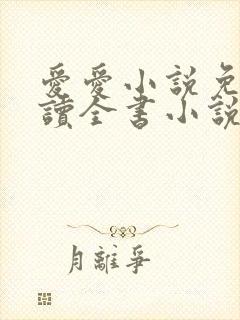 愛愛小說免
讀全書小說
月離爭